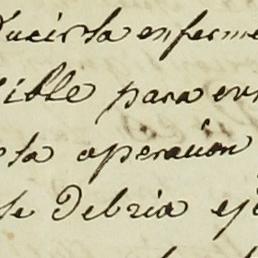 ducirla enferme
sible para evi
esta operacion
se Debria eje